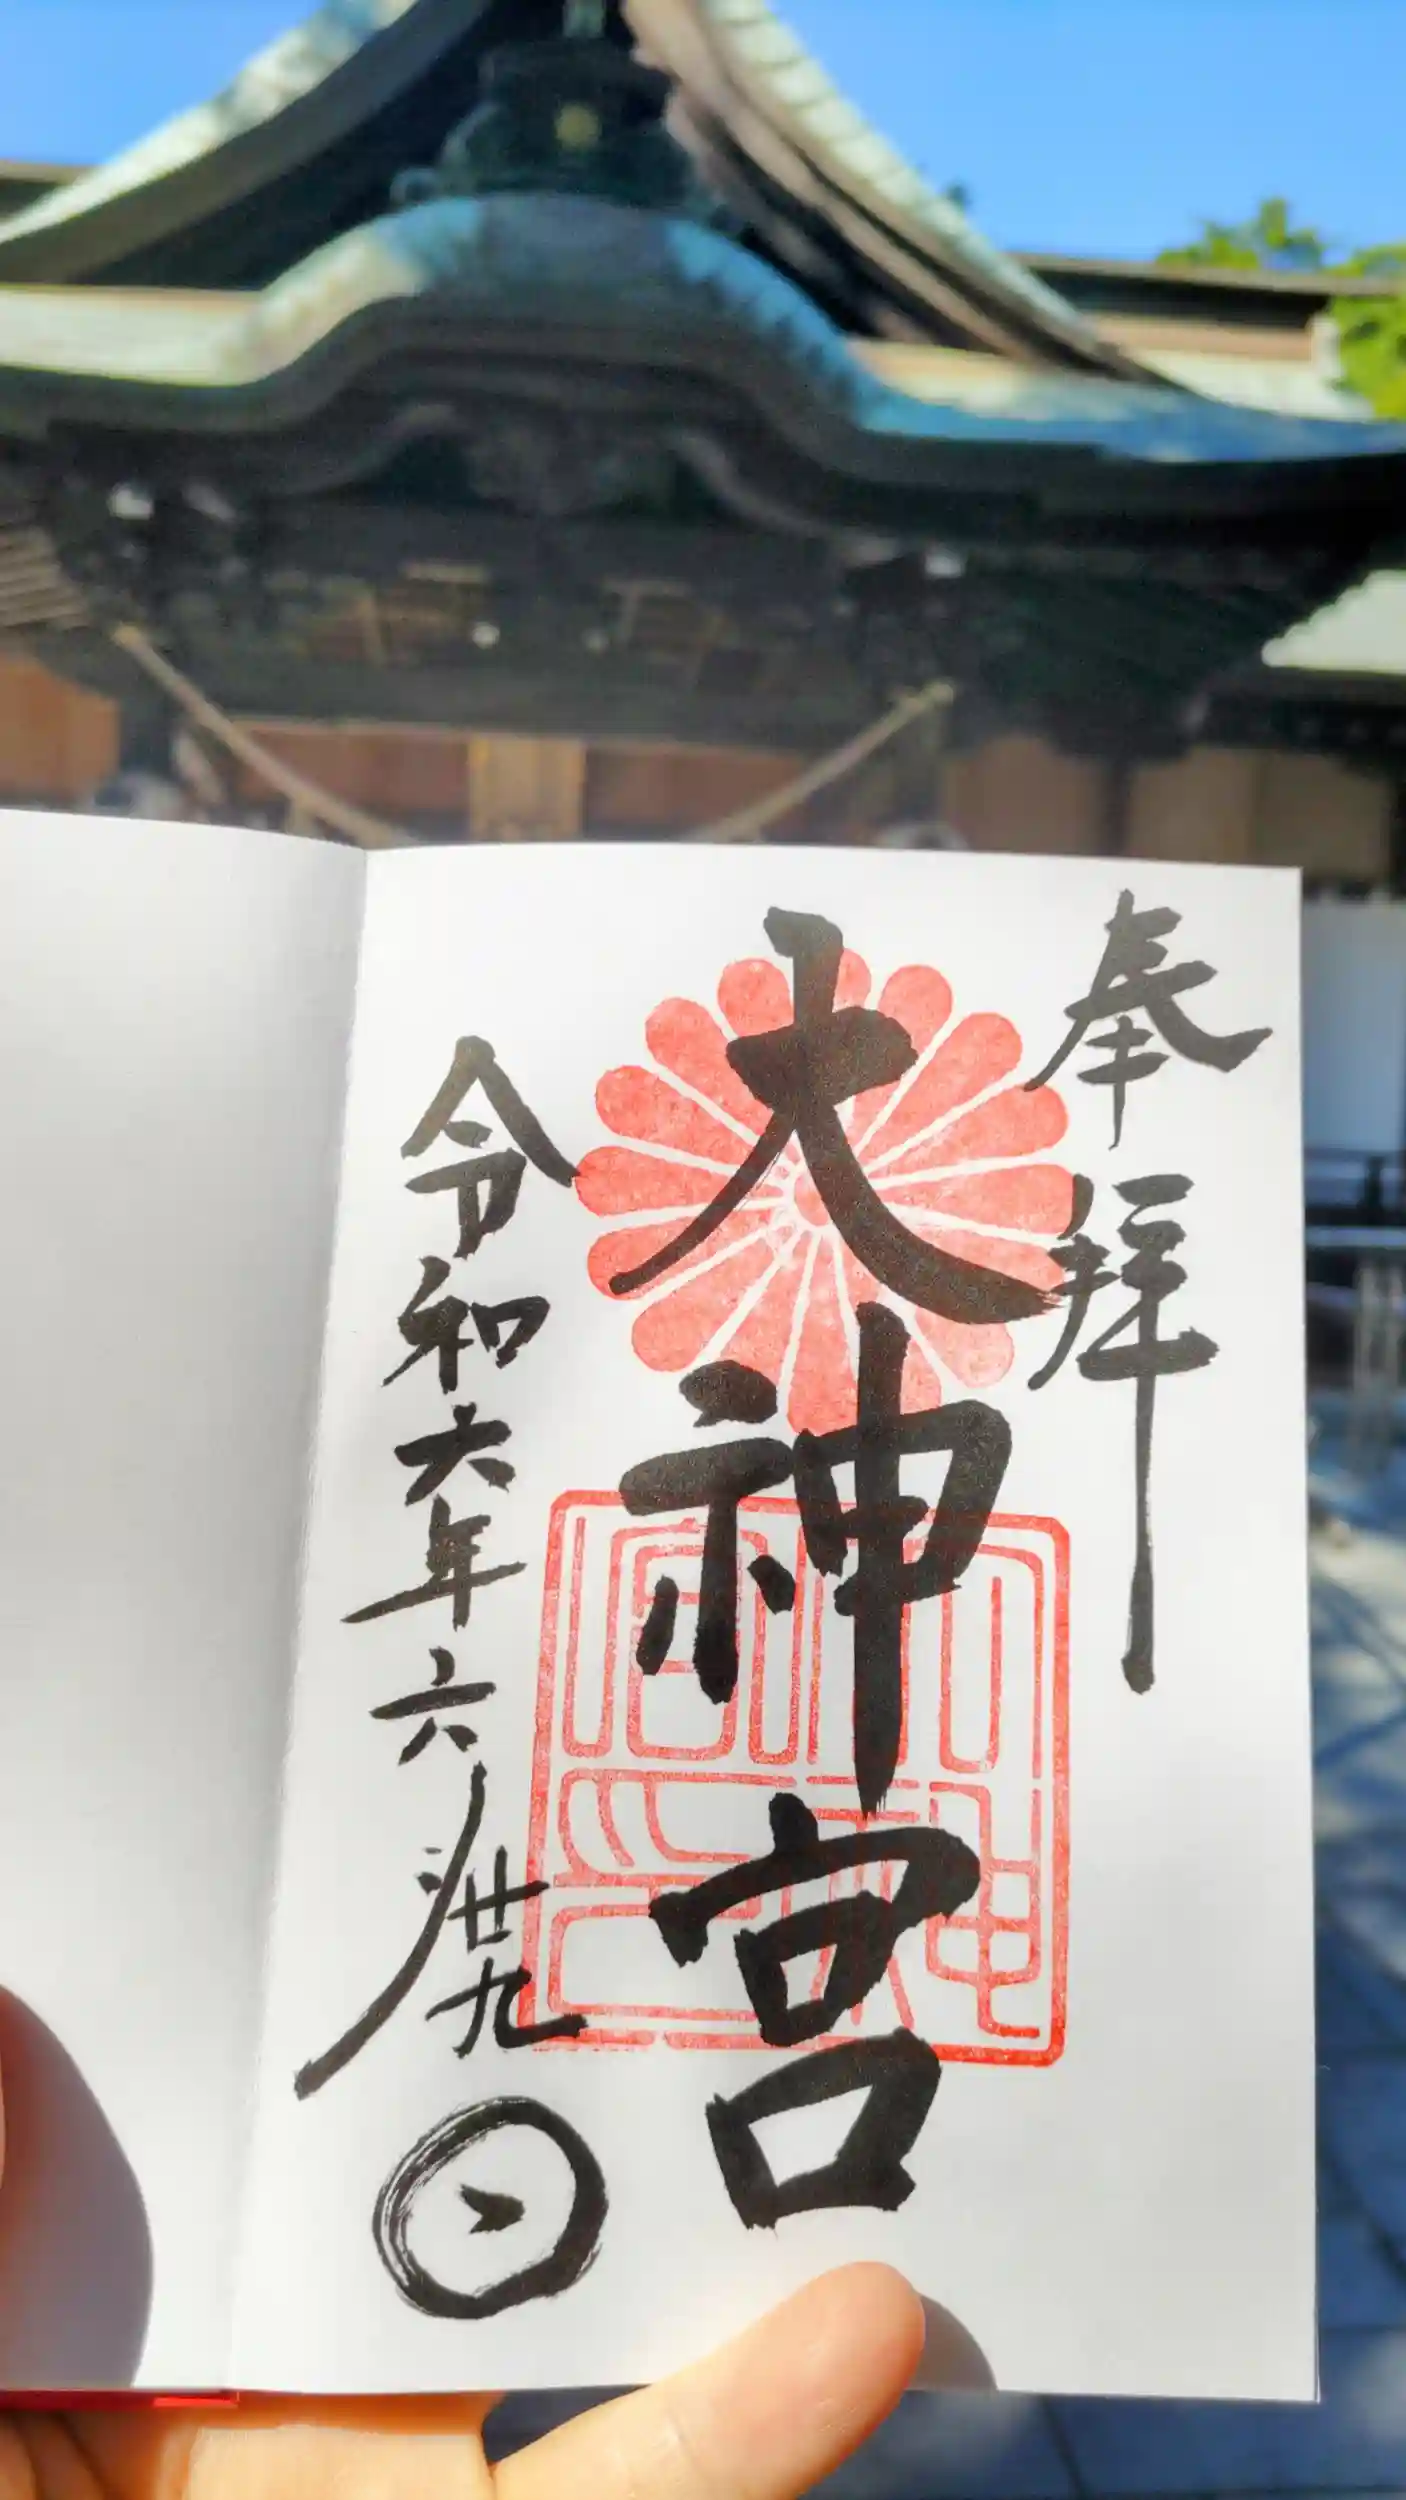 奉拝
大神宮
令和六年六月廿九日